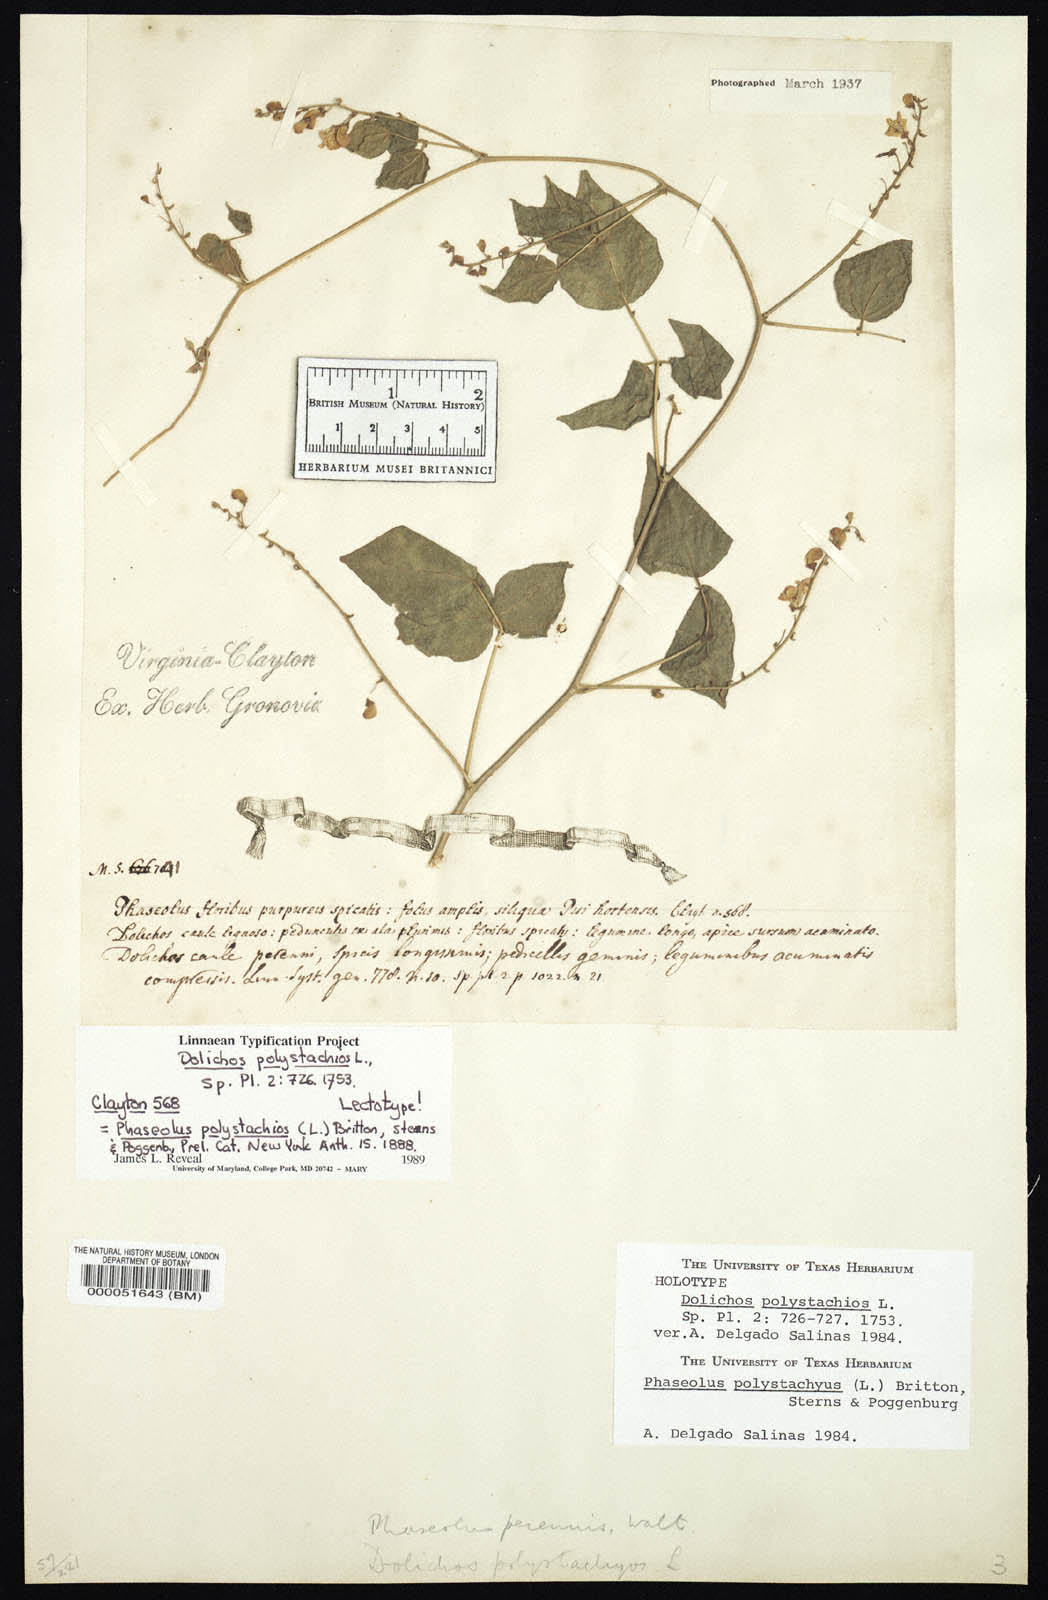 Photographed March 1937
1 2
BRITISH MUSEUM (NATURAL HISTORY)
1 2 3 4 5
HERBARIUM MUSEI BRITANNICI
Virginia-Clayton
Ex. Herb. Gronovii
M. S. 741
Phaseolus floribus purpureis spicatis: foliis amplis, siliqua Pisi hortensis. Clayt n. 568.
Dolichos caule lignoso: pedunculis ex alas plurimis: floribus spicatis: legumine longo, apice sursum acuminato.
Dolichos caule perenni, spicis longissimis; pedicellis geminis; leguminibus acuminatis
compressis. Linn. Syst. gen. 778. n. 10. Sp. pl. 2 p. 1022. n. 21.
Linnaean Typification Project
Dolichos polystachios L.,
Sp. Pl. 2: 726. 1753.
Clayton 568 Lectotype!
= Phaseolus polystachios (L.) Britton, Sterns
& Poggenb., Prel. Cat. New York Anth. 15. 1888.
James L. Reveal 1989
University of Maryland, College Park, MD 20742 – MARY
THE NATURAL HISTORY MUSEUM, LONDON
DEPARTMENT OF BOTANY
000051643 (BM)
THE UNIVERSITY OF TEXAS HERBARIUM
HOLOTYPE
Dolichos polystachios L.
Sp. Pl. 2: 726-727. 1753.
ver.A. Delgado Salinas 1984.
THE UNIVERSITY OF TEXAS HERBARIUM
Phaseolus polystachyus (L.) Britton,
Sterns & Poggenburg
A. Delgado Salinas 1984.
Phaseolus perennis, Walt.
Dolichos polystachyos L
3